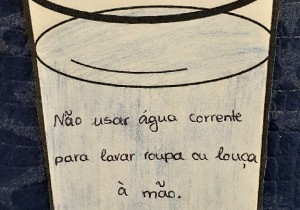 Não usar água corrente
para lavar roupa ou louça
à mão.